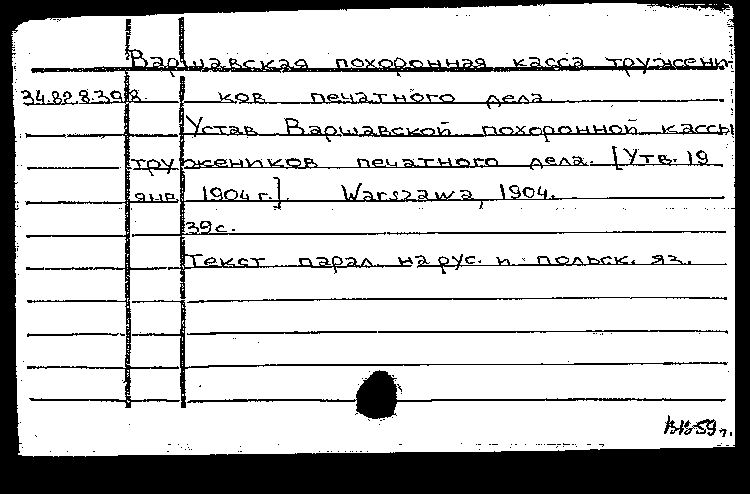 Варшавская похоронная касса тружени-
34.82.8.398. ков печатного дела.
Устав Варшавской похоронной кассы
тружеников печатного дела. [Утв. 19
янв. 1904 г.]. Warszawa, 1904.
39 с.
Текст парал. на рус. и польск. яз.